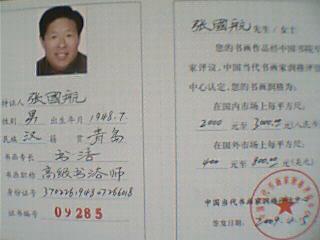 持证人 张國航
性别 男 出生年月 1948.7.
民族 汉 籍贯 青岛
书画专长 书法
书画职称 高级书法师
身份证号
证书编号 09285
张國航 先生/女士
您的书画作品经中国书院专
家评议，中国当代书画家润格评
中心认定，您的书画润格为：
在国内市场上每平方尺：
2000 元至 3000.00 元(人民币
在国外市场上每平方尺：
400 元至 800.00 元(美元)
中国当代书画家润格
签发日期